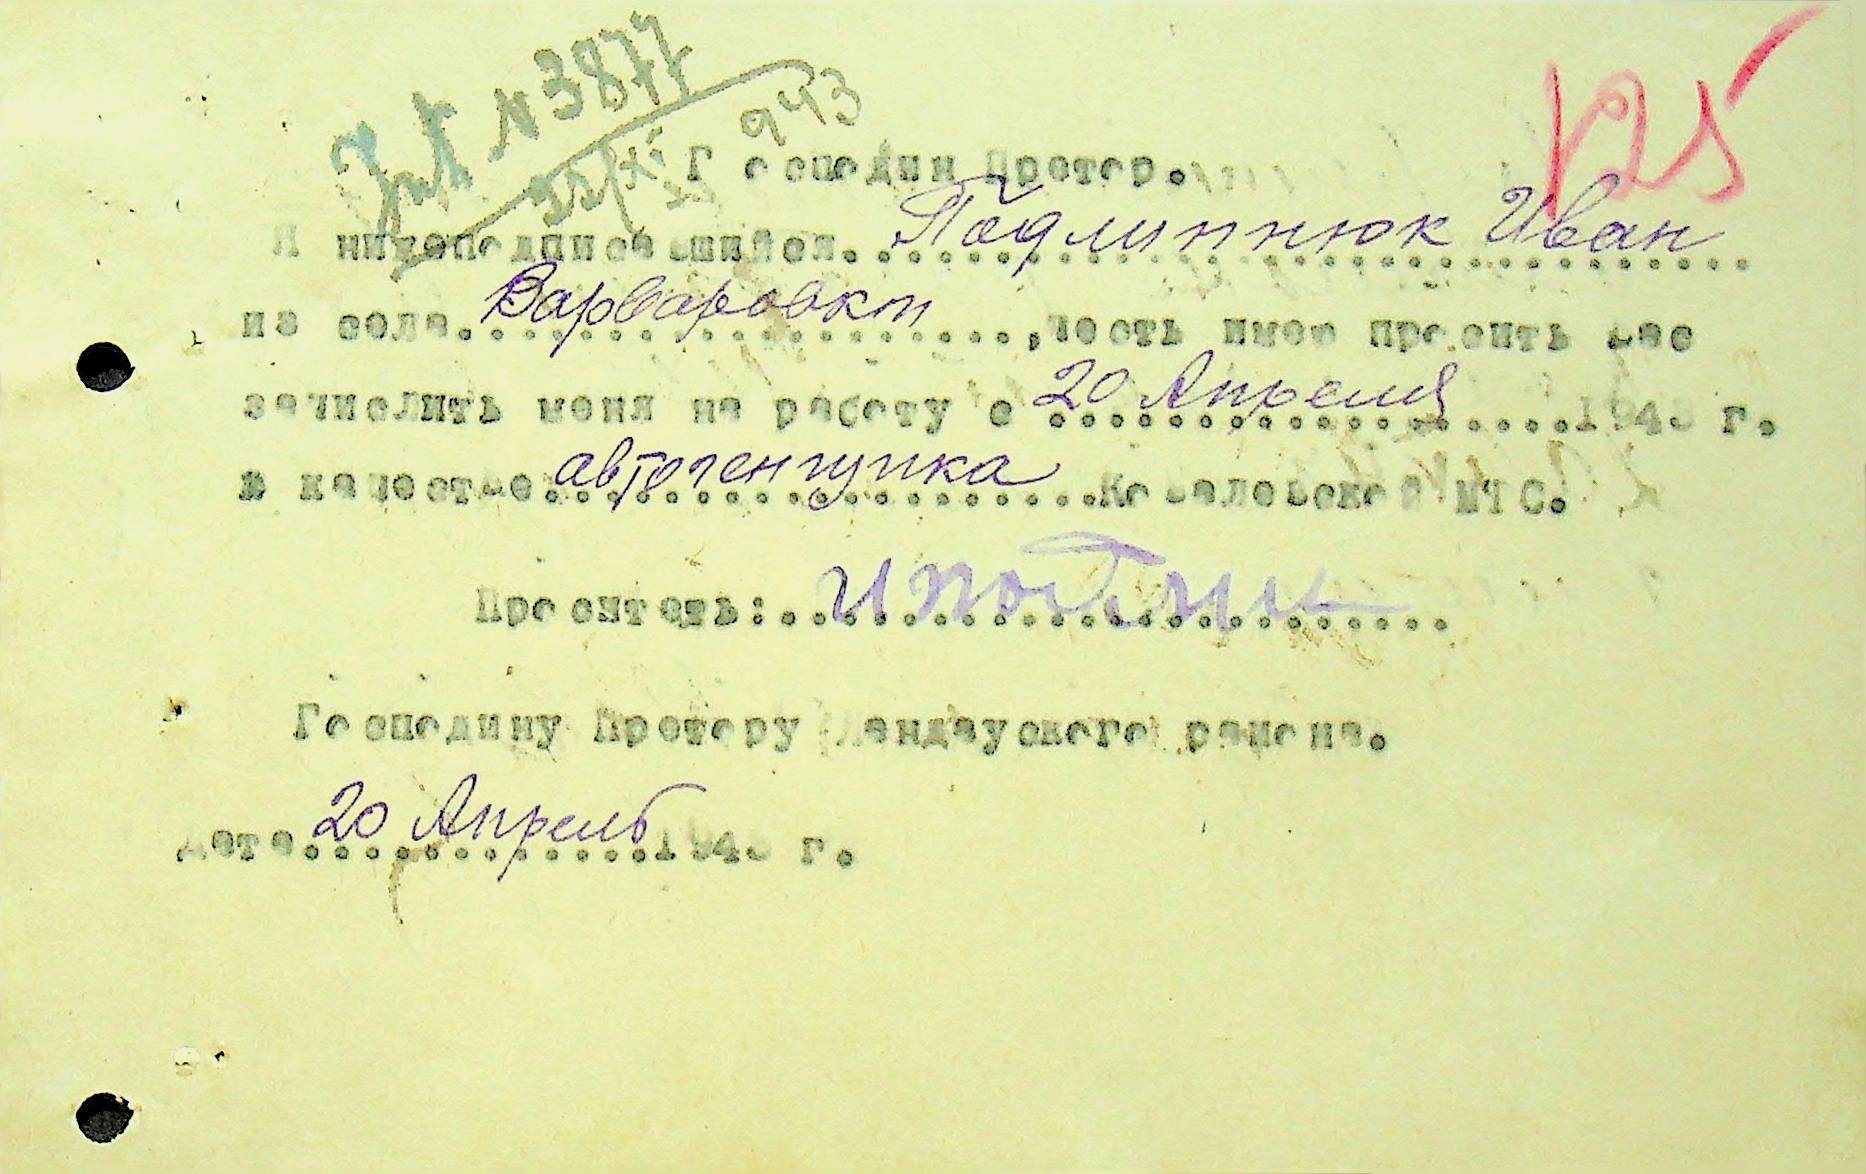 N 3877
943
125
Господин Претор.
Я нижеподписавшийся. Подлипнюк Иван
из села. Варваровки, честь имею просить Вас
зачислить меня на работу с 20 Апреля 1943 г.
в качестве автогенщика Ковалевской МТС.
Проситель:
Господину Претору Ландауского района.
Дата 20 Апрель 1943 г.